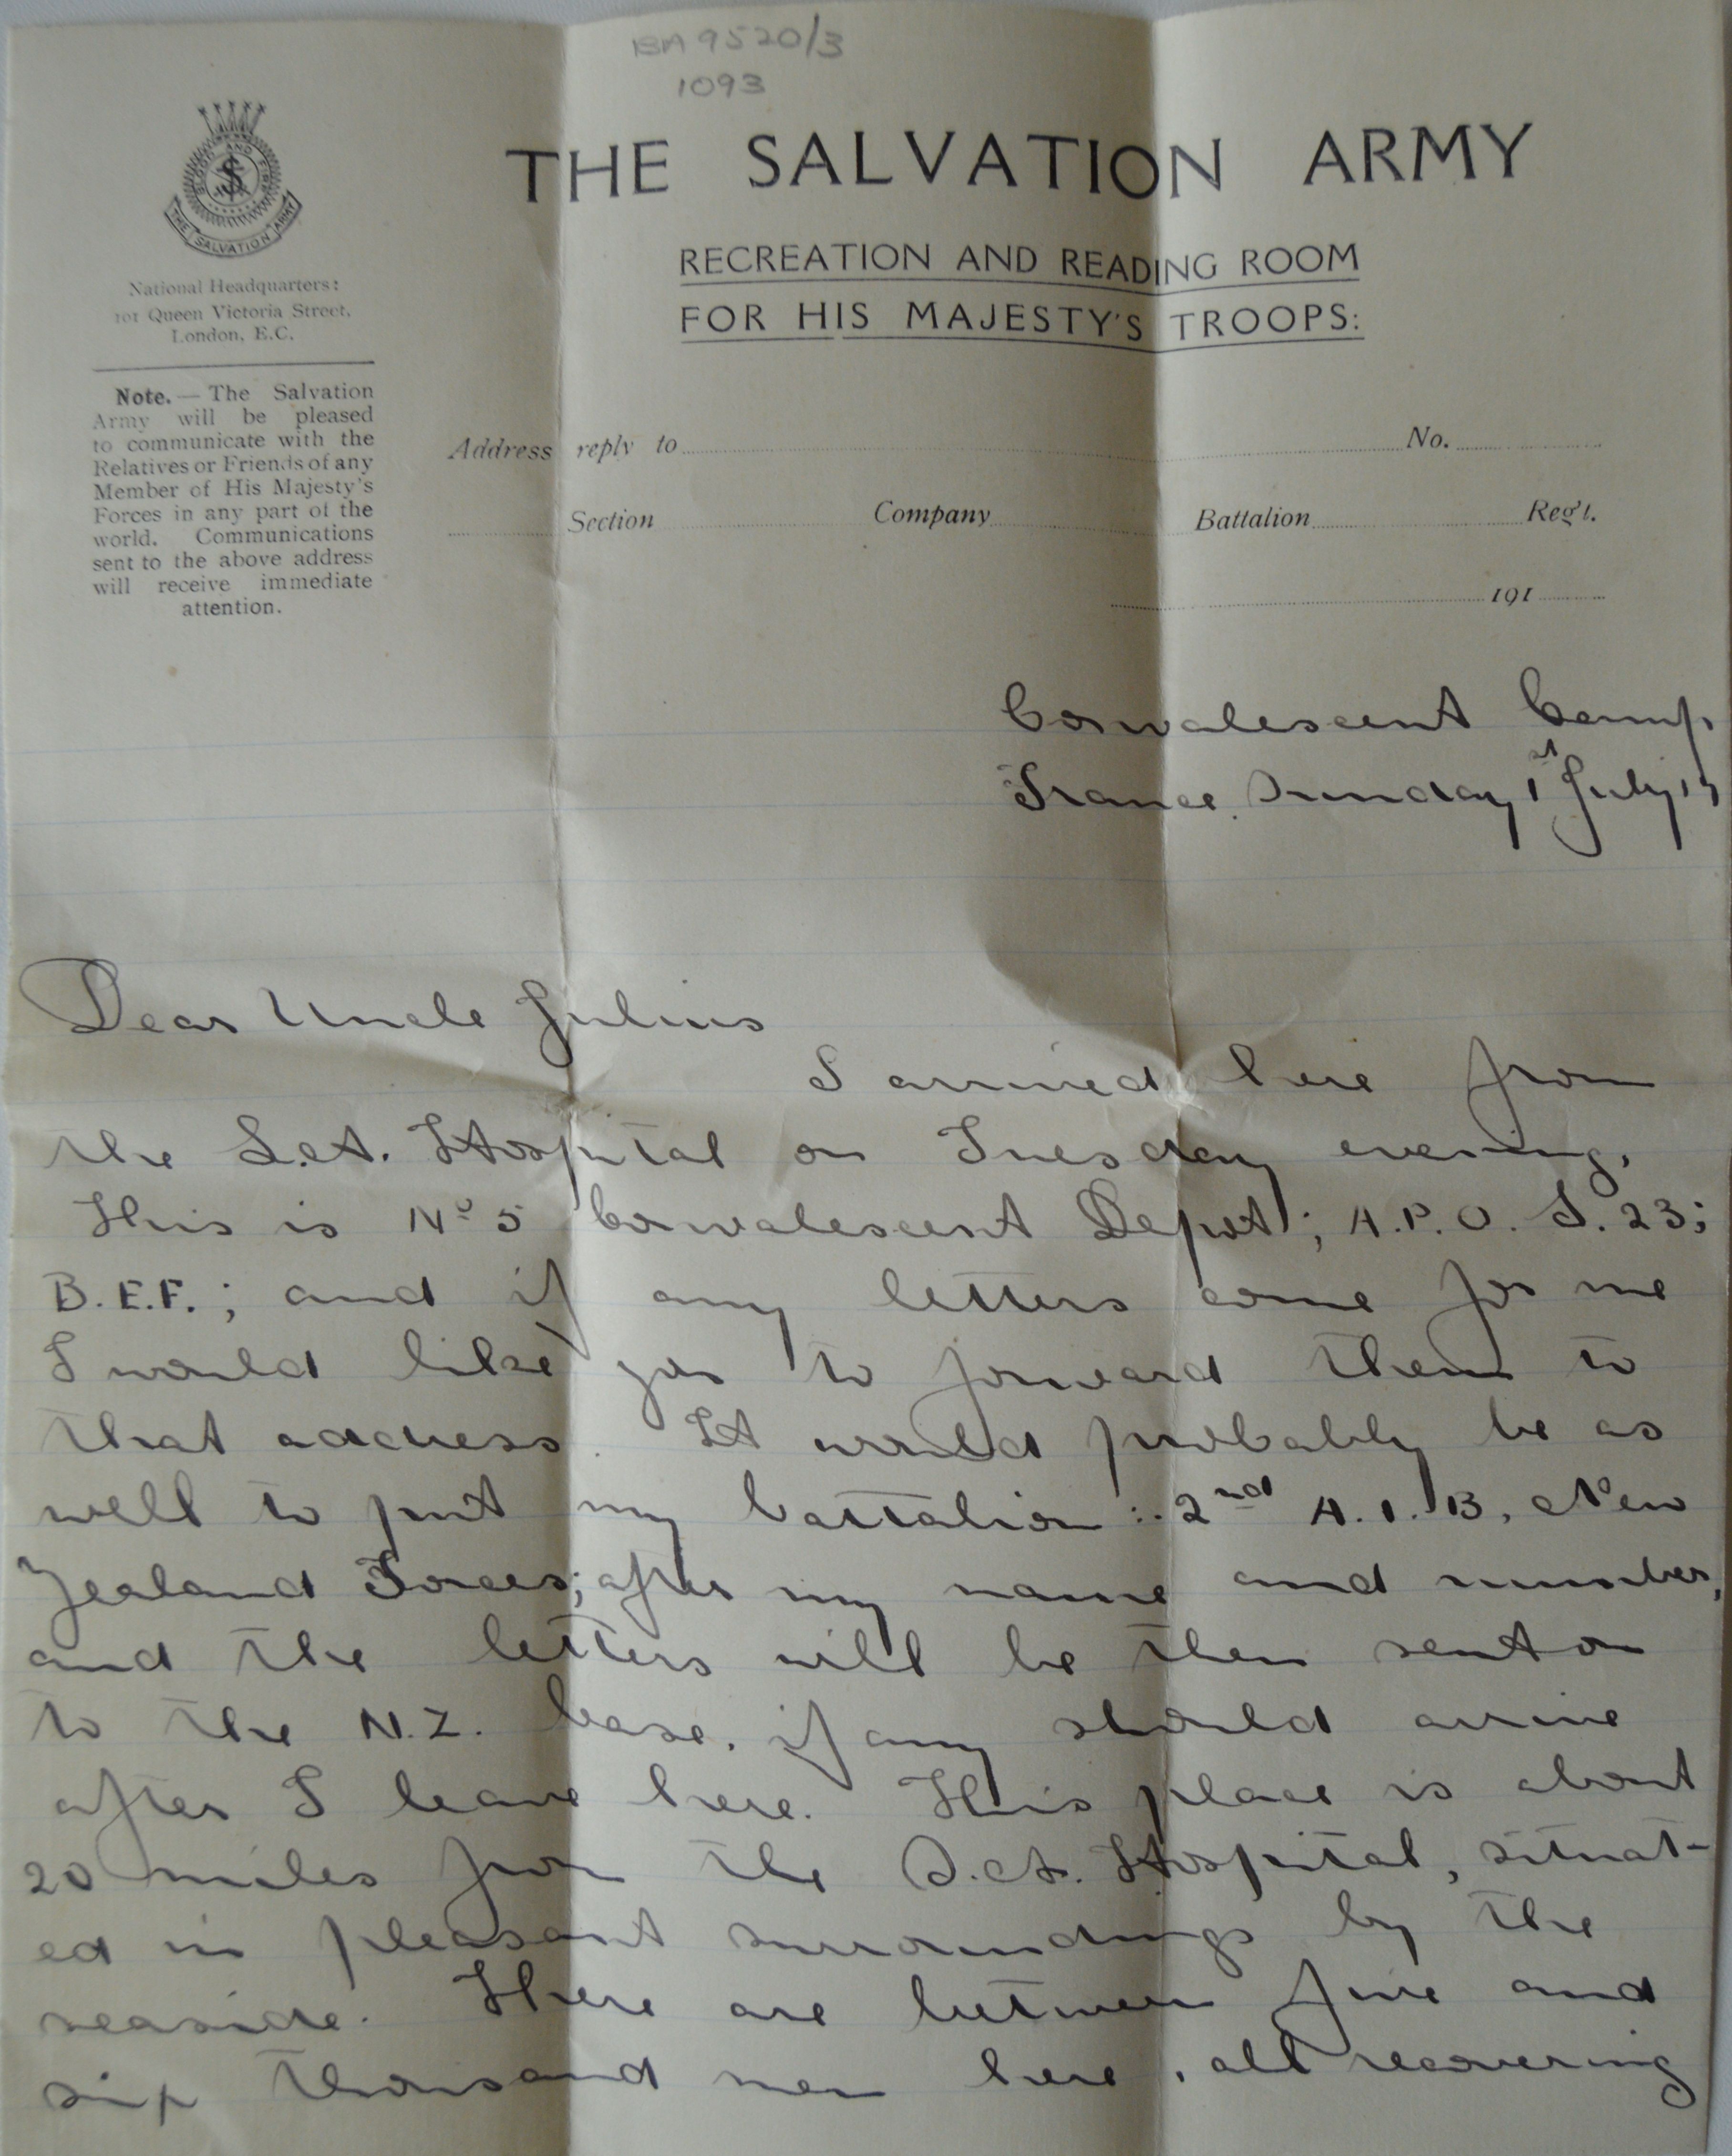 BA 9520/3
1093
BLOOD AND FIRE
THE SALVATION ARMY
THE SALVATION ARMY
RECREATION AND READING ROOM
FOR HIS MAJESTY'S TROOPS:
National Headquarters:
101 Queen Victoria Street,
London, E.C.
Note. — The Salvation
Army will be pleased
to communicate with the
Relatives or Friends of any
Member of His Majesty's
Forces in any part of the
world. Communications
sent to the above address
will receive immediate
attention.
Address reply to No.
Section Company Battalion Regt.
191
Convalescent Camp
France. Sunday 1st July 17
Dear Uncle Julius
I arrived here from
the S.A. Hospital on Tuesday evening.
This is No 5 Convalescent Depot; A.P.O. S.23;
B.E.F.; and if any letters come for me
I would like you to forward them to
that address. It would probably be as
well to put my battalion: 2nd A.I.B, New
Zealand Forces; after my name and number,
and the letters will be then sent on
to the N.Z. base, if any should arrive
after I leave here. This place is about
20 miles from the S.A. Hospital, situat-
ed in pleasant surroundings by the
seaside. There are between five and
six thousand men here, all recovering